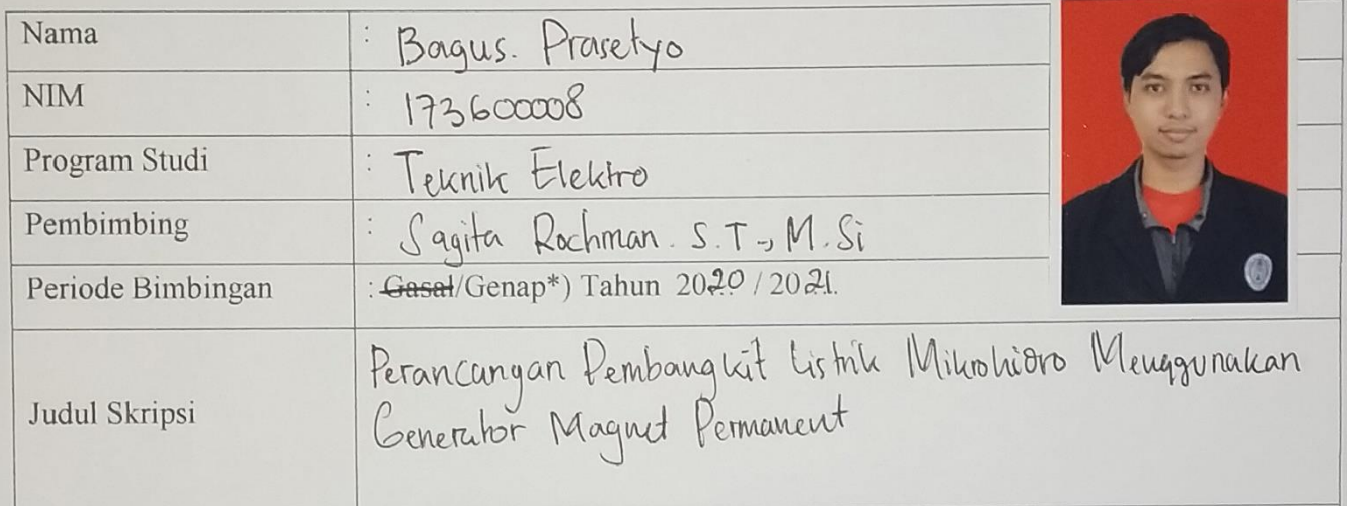 Nama : Bagus. Prasetyo
NIM : 173600008
Program Studi : Teknik Elektro
Pembimbing : Sagita Rochman. S.T., M.Si
Periode Bimbingan : Gasal/Genap*) Tahun 2020 / 2021.
Judul Skripsi
Perancangan Pembangkit Listrik Mikrohidro Menggunakan
Generator Magnet Permanent